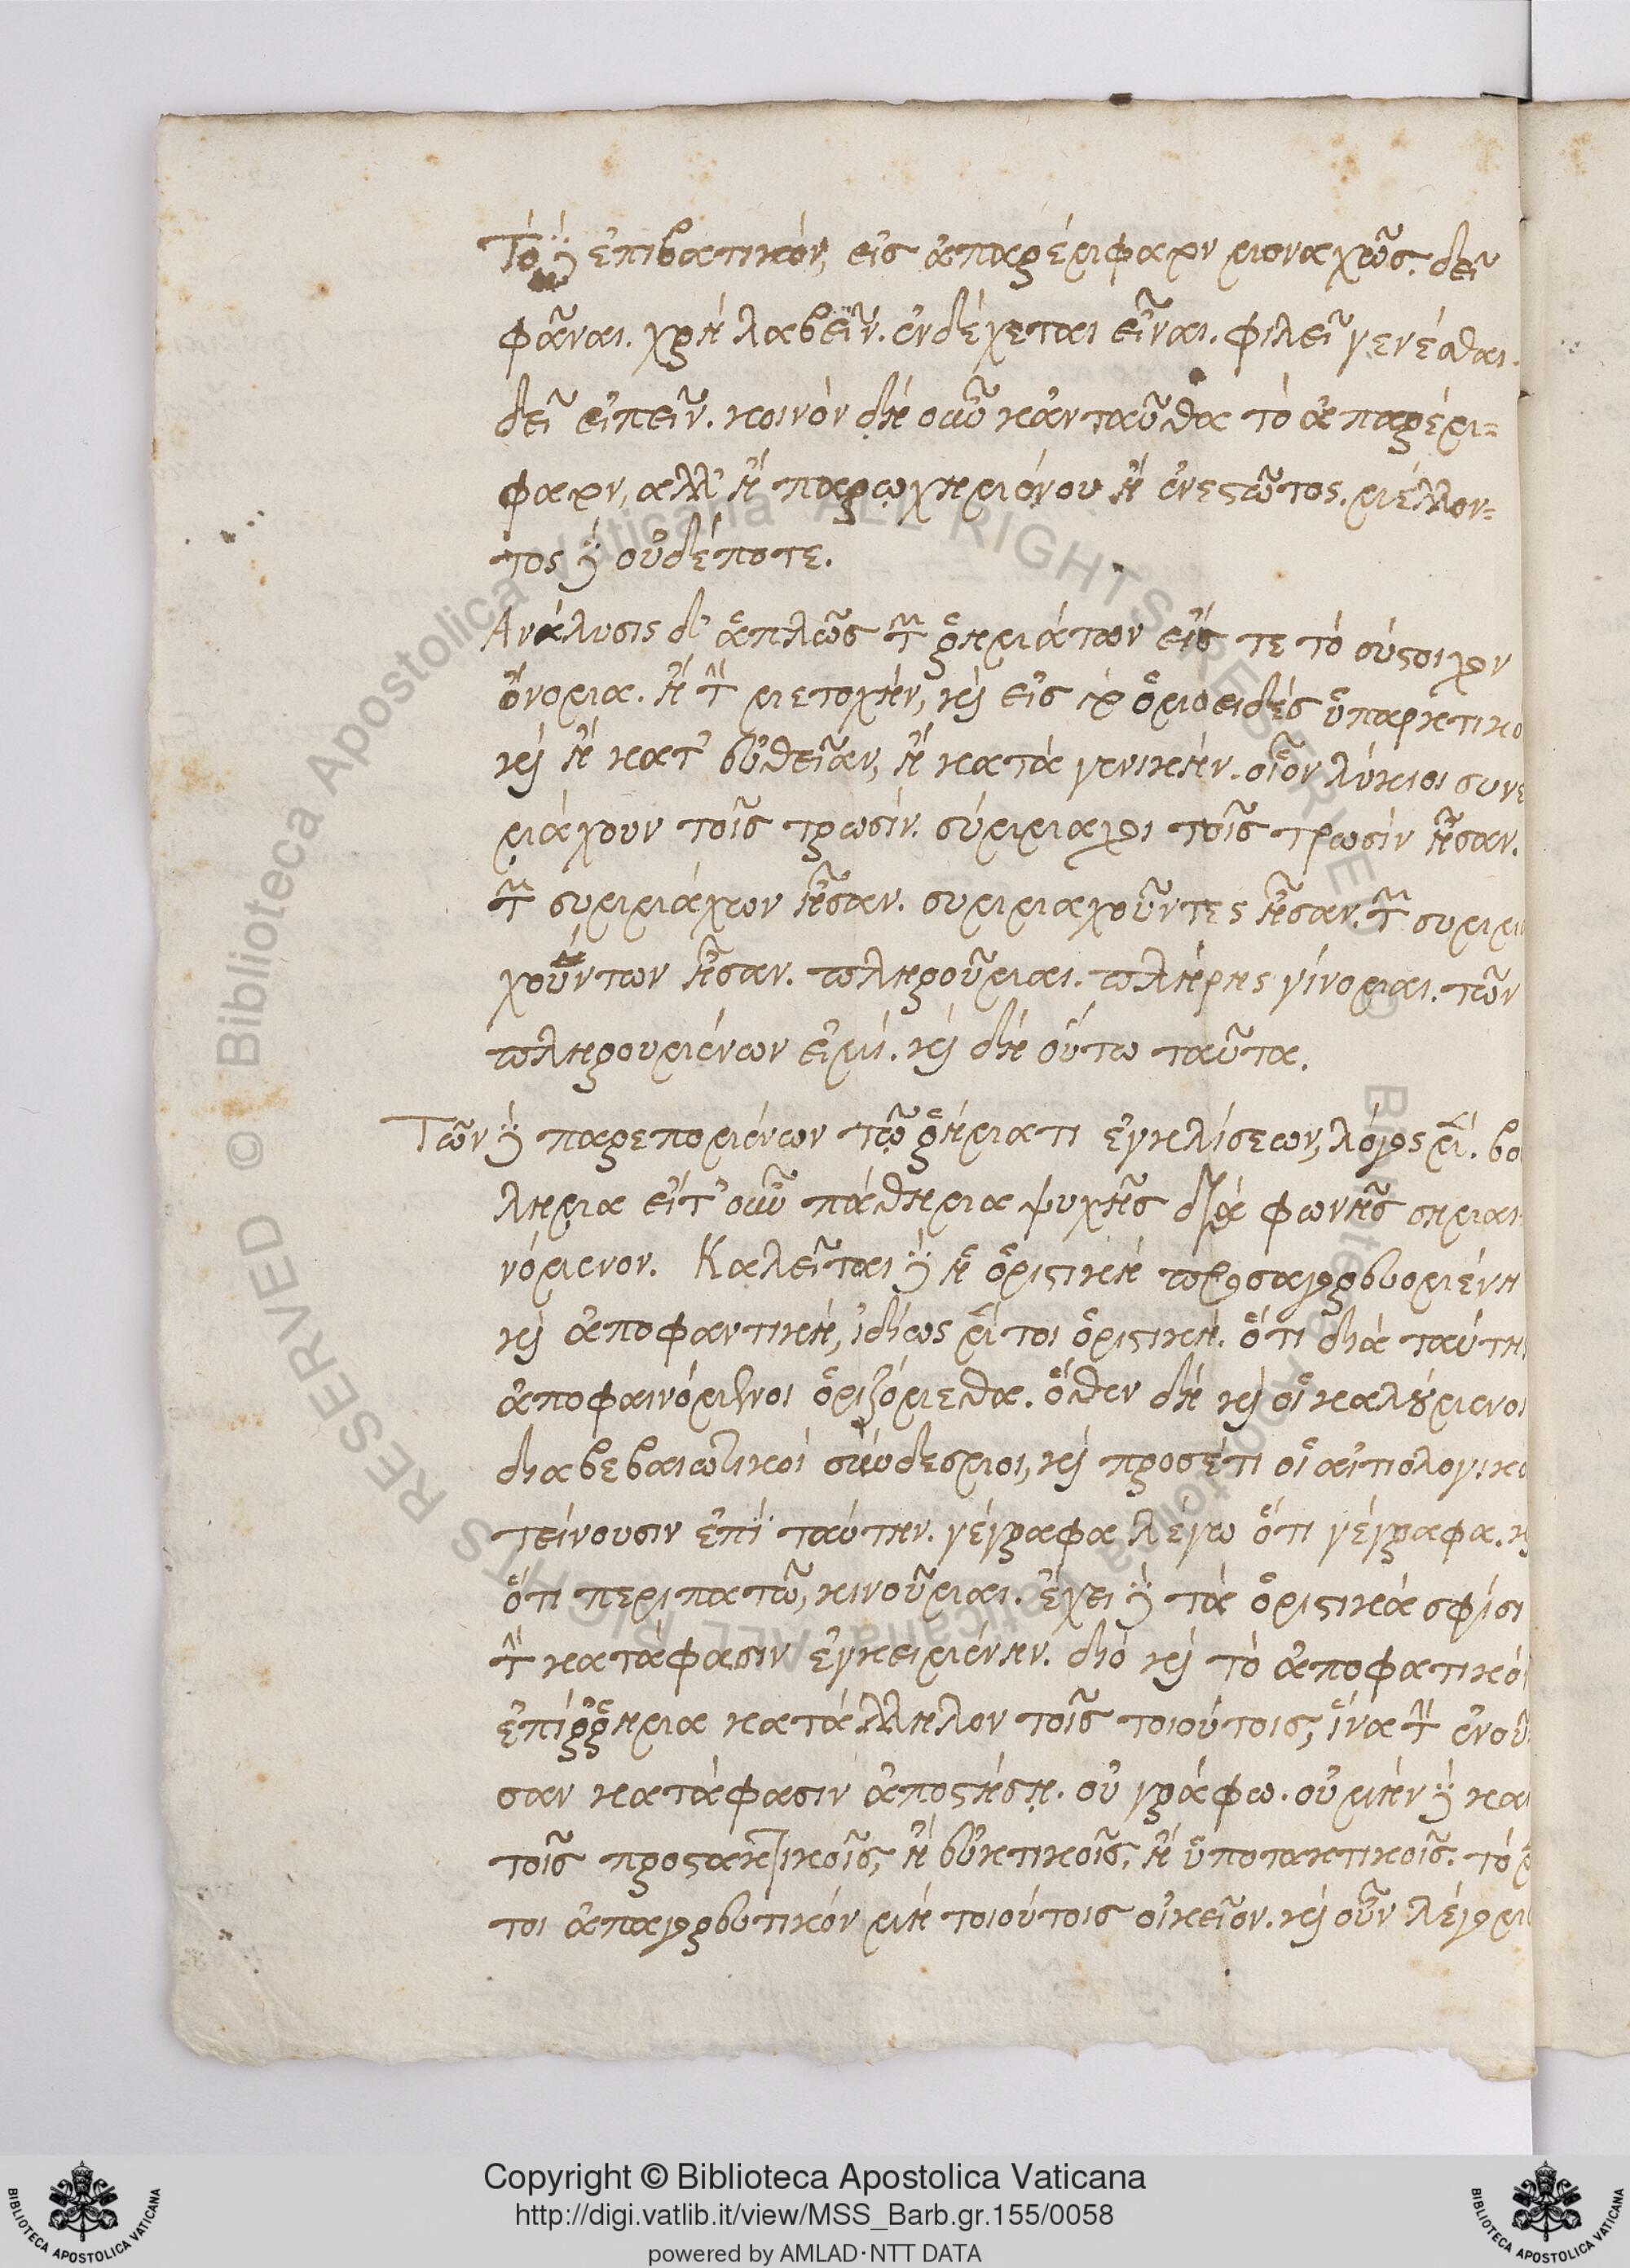 Τὸ δὲ ἐπιβατικὸν, εἰς ἀπαρέμφατον μοναχῶς. δεῖ
φᾶναι. χρὴ λαβεῖν. ἐνδέχεται εἶναι. φιλεῖ γενέσθαι.
δεῖ εἰπεῖν. κοινὸν δὴ οὖν κἀνταῦθα τὸ ἀπαρέμ=
φατον, ἀλλ' ἢ παρῳχημένου ἢ ἐνεστῶτος. μέλλον=
τος δὲ οὐδέποτε.
Ανάλυσις δ' ἁπλῶς τῶν ῥημάτων εἴς τε τὸ σύστοιχον
ὄνομα. ἢ τὴν μετοχὴν, καὶ εἰς τὸ ὁμοειδὲς ὑπαρκτικο
καὶ ἢ κατ' εὐθεῖαν, ἢ κατὰ γενικήν. οἷον λύκιοι συνε
μάχουν τοῖς τρωσίν. σύμμαχοι τοῖς τρωσὶν ἦσαν.
τῶν συμμάχων ἦσαν. συμμαχοῦντες ἦσαν. τῶν συμμ
χούντων ἦσαν. πληροῦμαι. πλήρης γίνομαι. τῶν
πληρουμένων εἰμί. καὶ δὴ οὕτω ταῦτα.
Τῶν δὲ παρεπομένων τῷ ῥήματι ἐγκλίσεων, λόγος μὲν. βο
λημα εἴτ' οὖν πάθημα ψυχῆς διὰ φωνῆς σημαι
νόμενον. Καλεῖται δὲ ἡ ὁριστικὴ προσαγορευομένη
καὶ ἀποφαντικὴ, ἰδίως μέντοι ὁριστική. ὅτι διὰ ταύτη
ἀποφαινόμενοι ὁριζόμεθα. ὅθεν δὴ καὶ οἱ καλούμενοι
διαβεβαιωτικοὶ σύνδεσμοι, καὶ προσέτι οἱ αἰτιολογικο
τείνουσιν ἐπὶ ταύτην. γέγραφα λέγω ὅτι γέγραφα. καὶ
ὅτι περιπατῶ, κινοῦμαι. ἔχει δὲ τὰ ὁριστικὰ σφίσι
τὴν κατάφασιν ἐγκειμένην. διὸ καὶ τὸ ἀποφατικὸ
ἐπίῤῥημα κατάλληλον τοῖς τοιούτοις, ἵνα τὴν ἐνοῦ
σαν κατάφασιν ἀποστήσῃ. οὐ γράφω. οὐ μὴν δὲ και
τοῖς προστακτικοῖς, ἢ εὐκτικοῖς, ἢ ὑποτακτικοῖς. τὸ μ
τοι ἀπαγορευτικὸν μὴ τοιούτοις οἰκεῖον. καὶ οὖν λέγομ
Copyright © Biblioteca Apostolica Vaticana
http://digi.vatlib.it/view/MSS_Barb.gr.155/0058
powered by AMLAD·NTT DATA